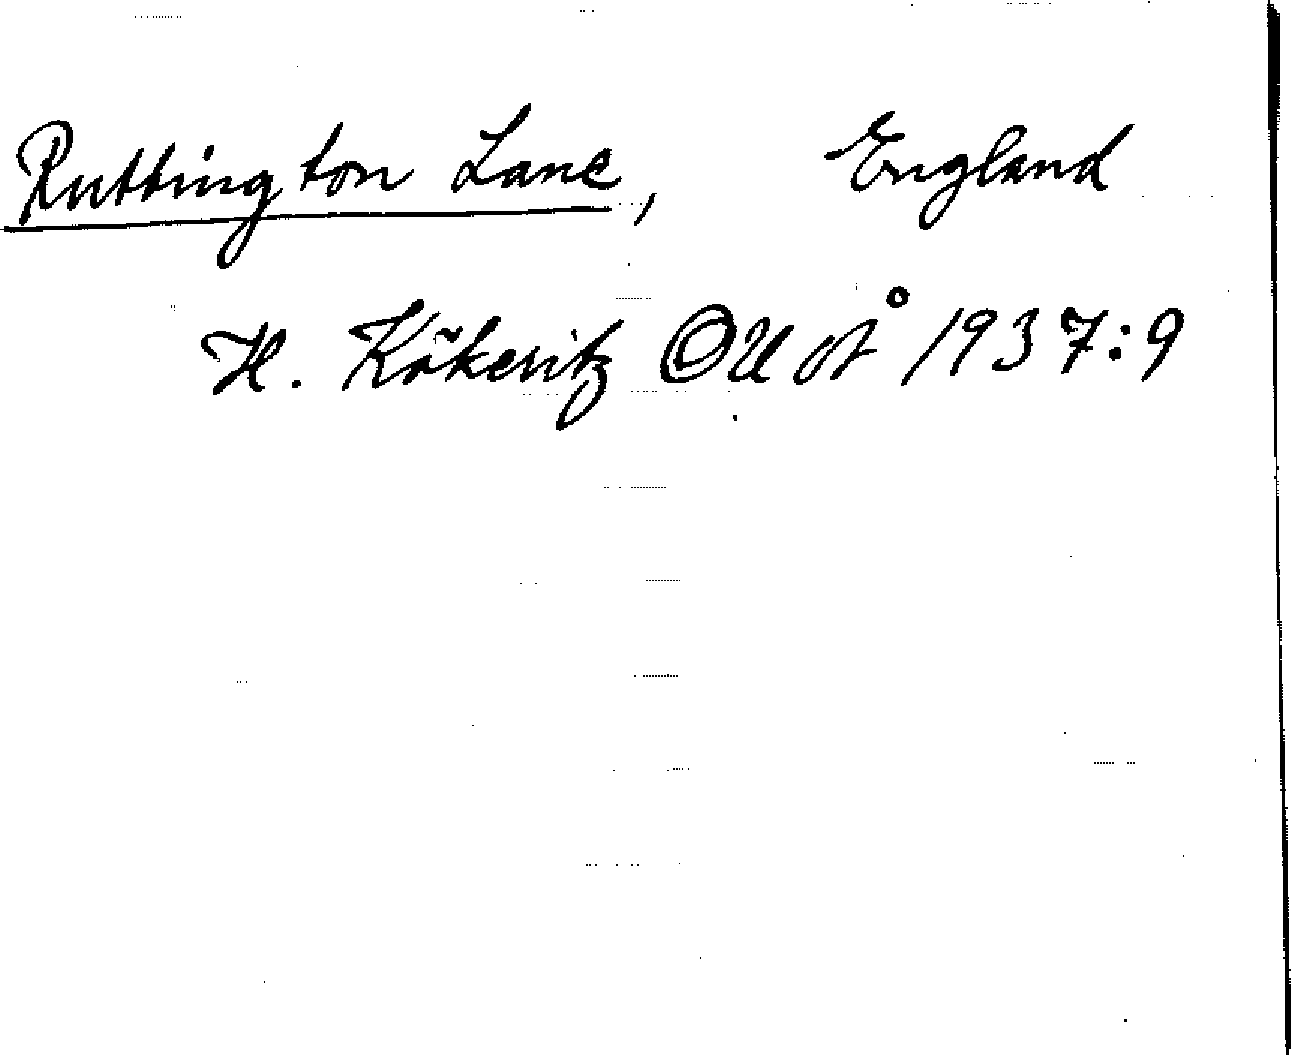 Ruttington Lane, England
H. Kökeritz UUÅ 1937:9